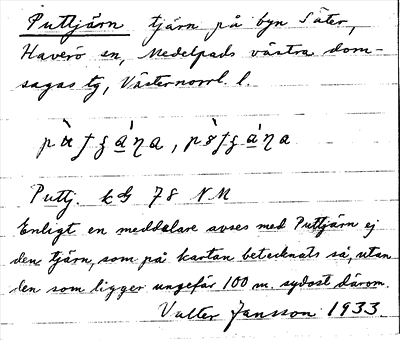 Puttjärn tjärn på byn Säter,
Haverö sn, Medelpads västra dom-
sagas tg, Västernorrl. l.
Puttj. kG 78 NM
Enligt en meddelare avses med Puttjärn ej
den tjärn, som på kartan betecknats så, utan
den som ligger ungefär 100 m. sydost därom.
Valter Jansson 1933.